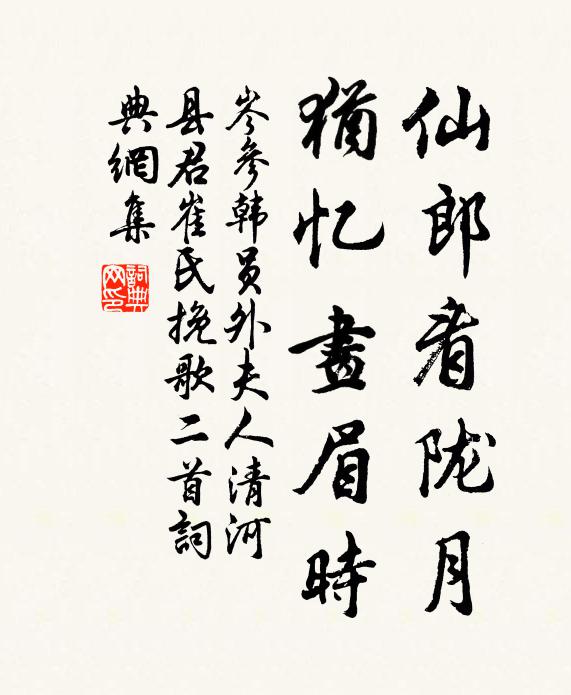 仙郎看陇月
猶忆畫眉時
岑參韩员外夫人清河
县君崔氏挽歌二首詞
典網集
詞典
网印